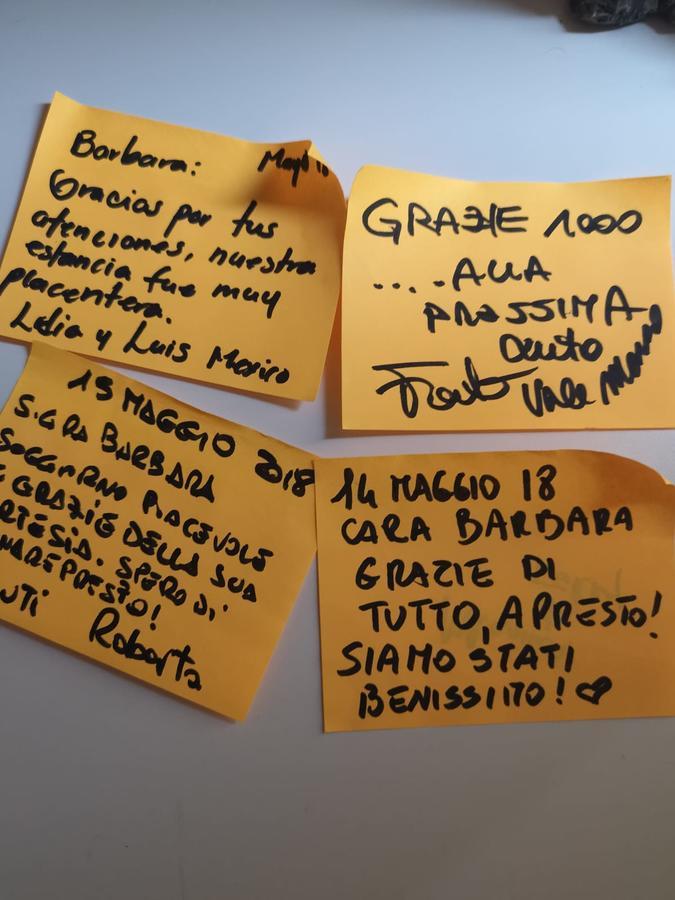 Barbara:
Gracias por tus
atenciones, nuestra
estancia fue muy
placentera.
Lidia y Luis Mexico
GRAZIE 1000
....ALLA
PROSSIMA
Vale Marco
15 MAGGIO 2018
S.G.RA BARBARA
SOGGIORNO PIACEVOLE
GRAZIE DELLA SUA
RTESIA. SPERO DI
NARE PRESTO!
UTI Roberta
14 MAGGIO 18
CARA BARBARA
GRAZIE DI
TUTTO, A PRESTO!
SIAMO STATI
BENISSIMO! ♡